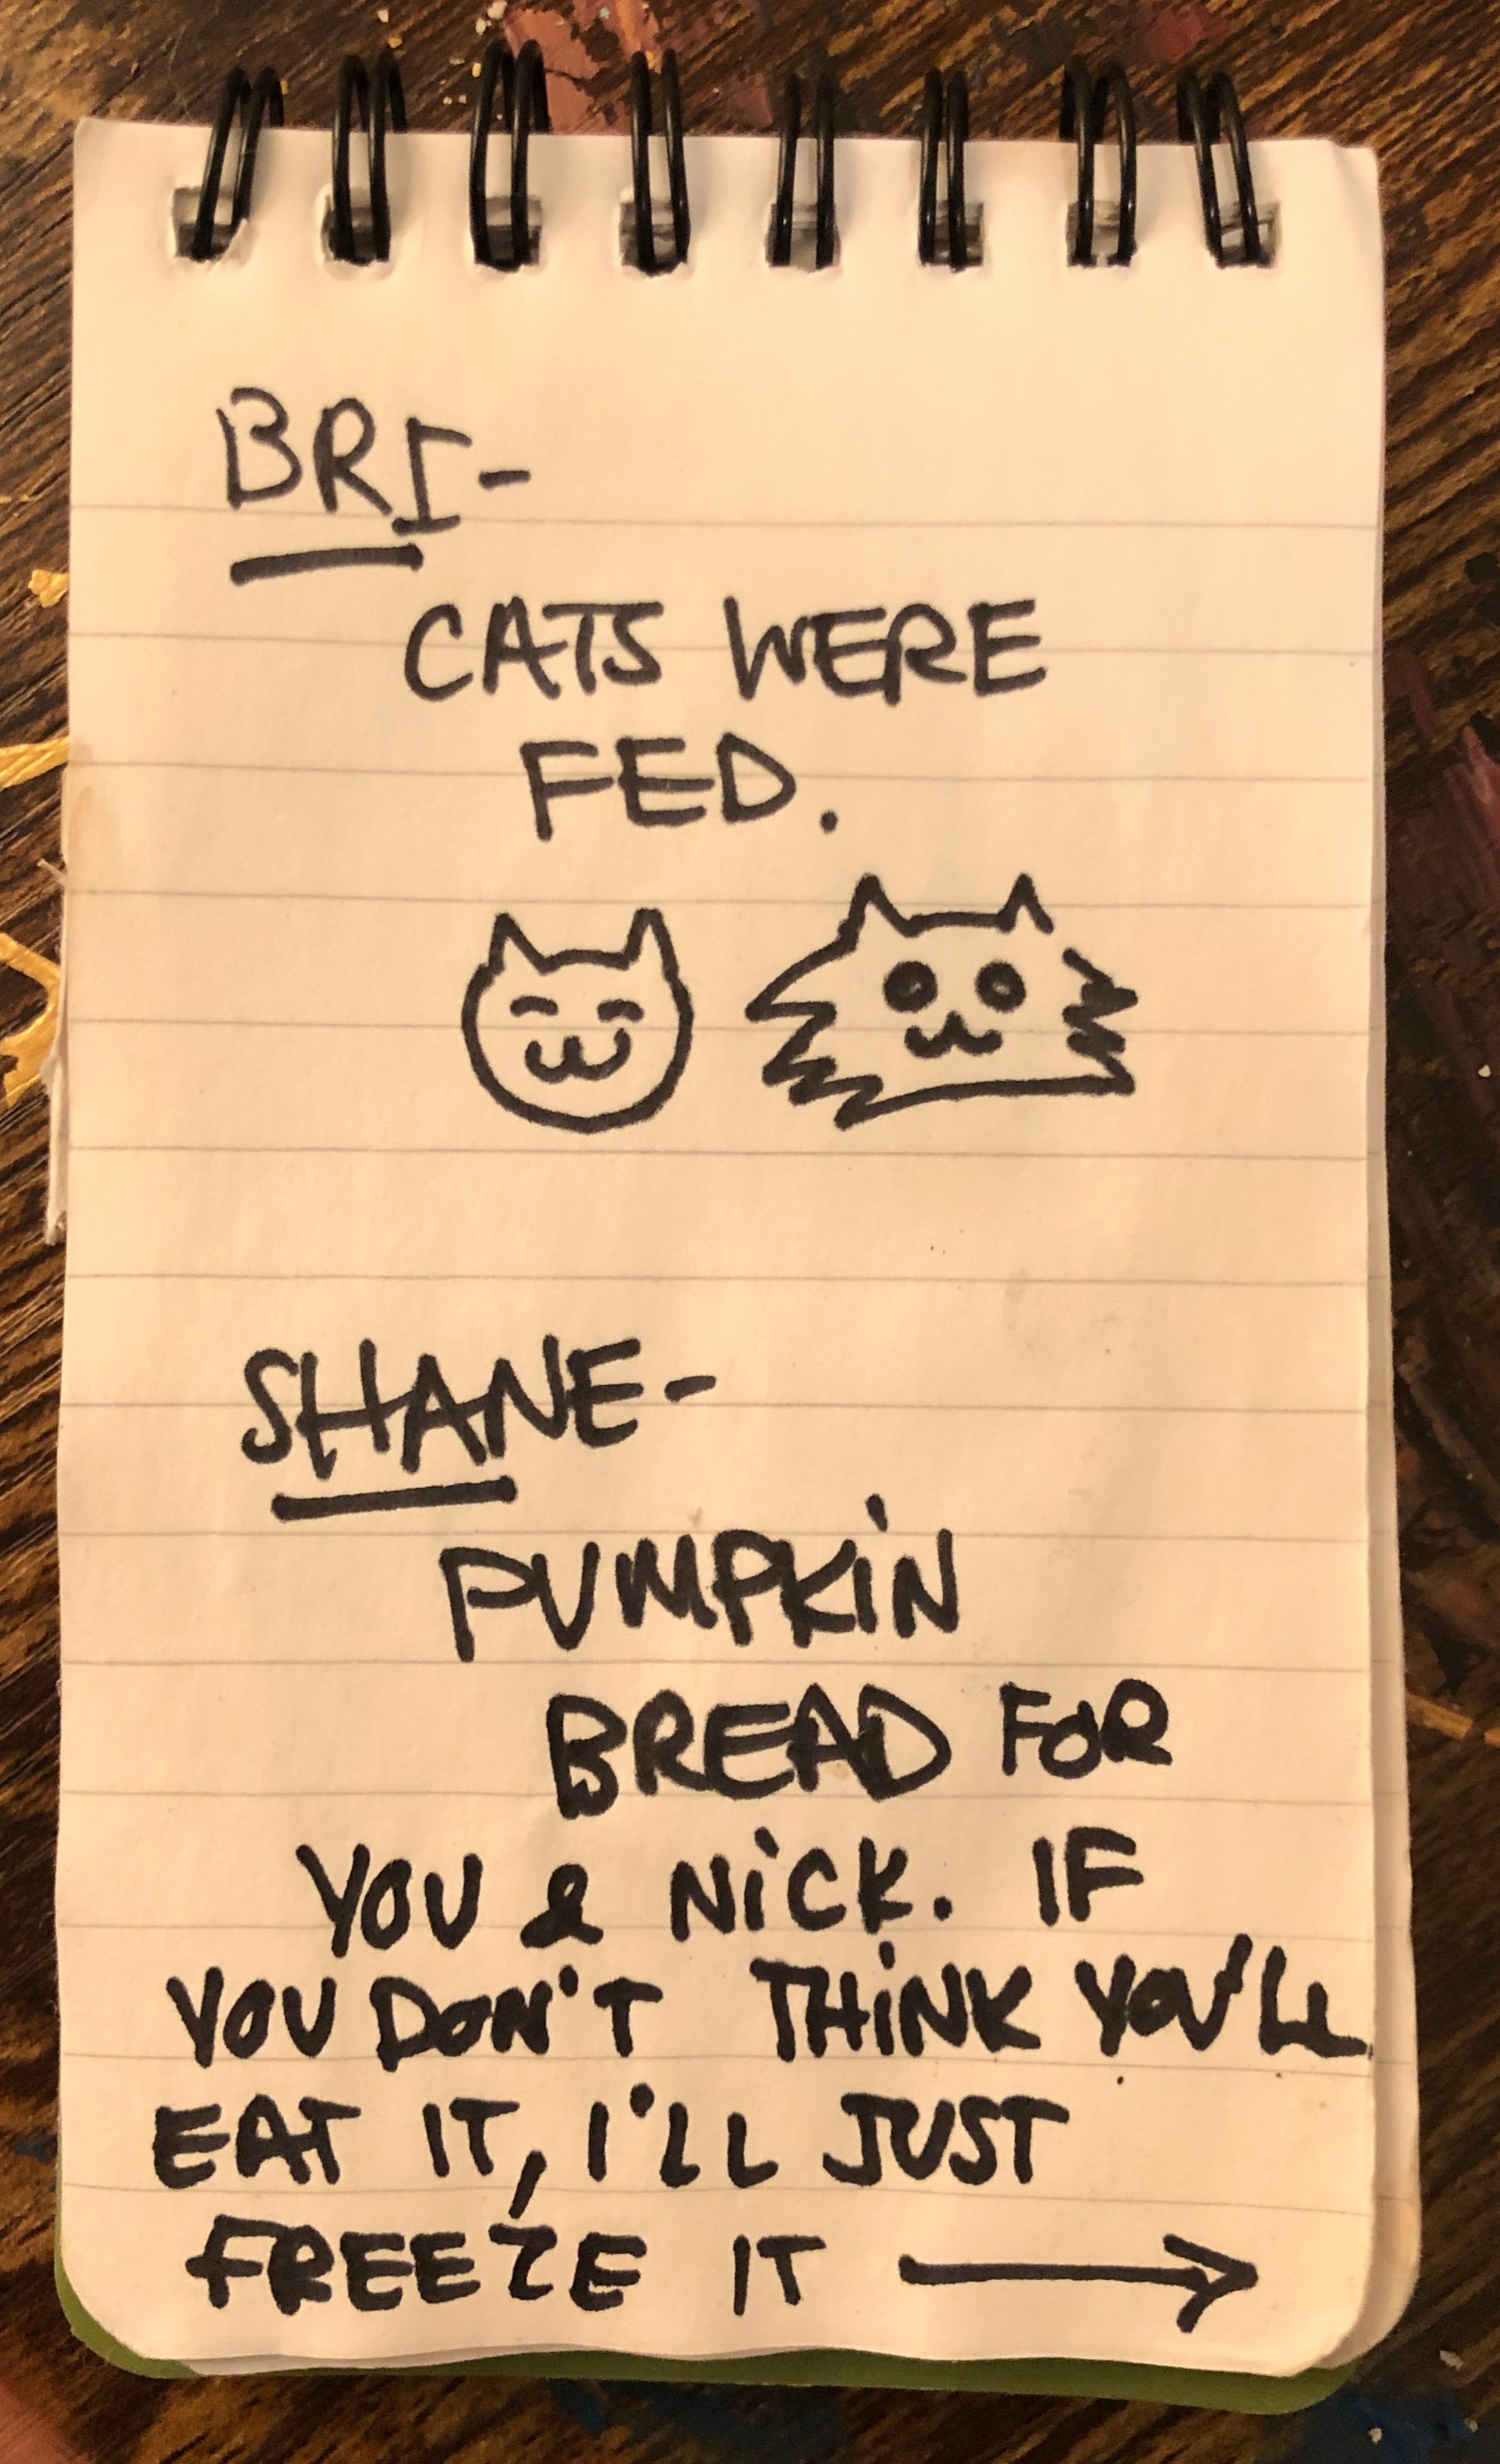 BRI-
CATS WERE
FED.
SHANE-
PUMPKiN
BREAD FOR
YOU & NiCK. IF
YOU DON'T THiNK YOU'LL
EAT IT, I'LL JUST
FREEZE IT →